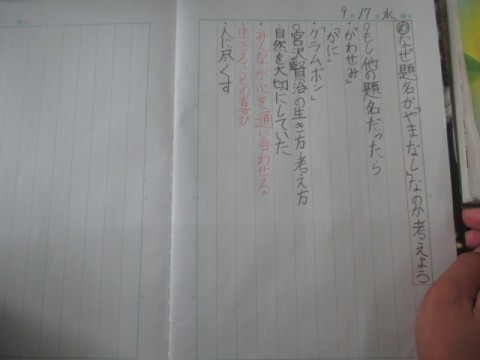 9月17日水曜日
めなぜ題名が「やまなし」なのか考えよう
○もし他の題名だったら
「かわせみ」
「かに」
「クラムボン」
○宮沢賢治の生き方・考え方
・自然を大切にしていた
・みんなが心を通い合わせる
・生きることの喜び
・人に尽くす